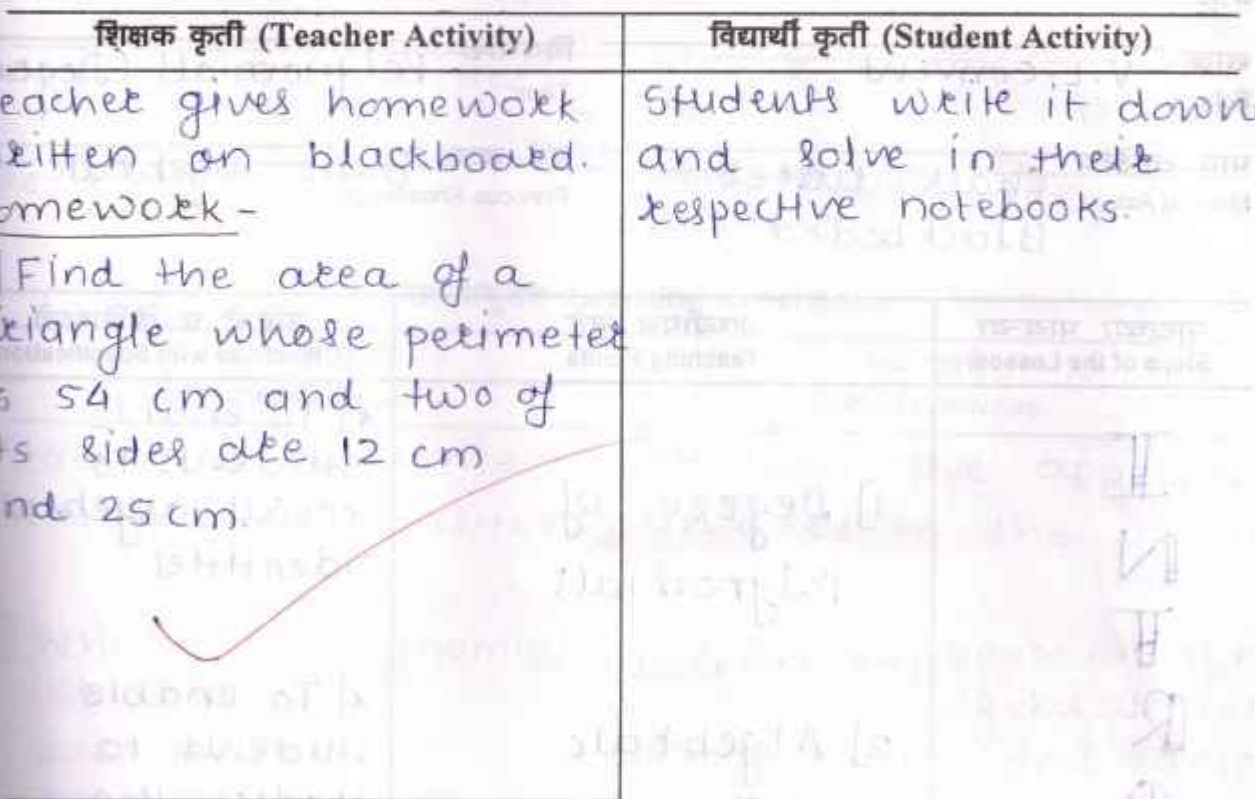 शिक्षक कृती (Teacher Activity) विद्यार्थी कृती (Student Activity)
eacher gives homework
ritten on blackboard.
omework -
Find the area of a
riangle whose perimeter
s 54 cm and two of
ts sides are 12 cm
nd 25 cm.
Students write it down
and solve in their
respective notebooks.